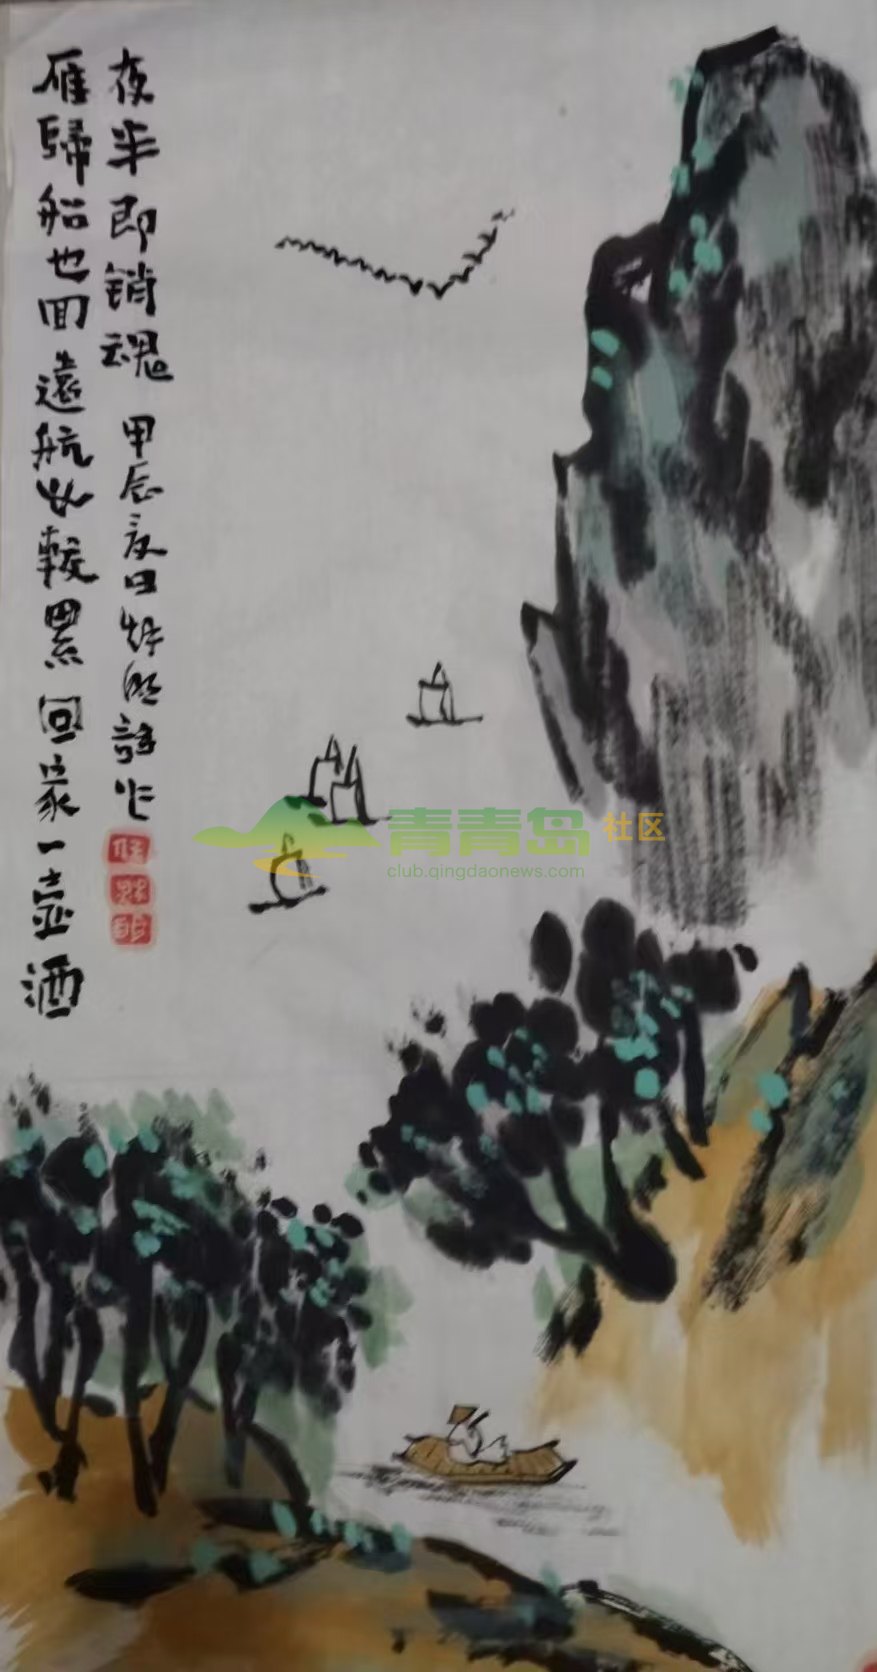 雁歸船也囬遠航比較累回家一壺酒
夜半即銷魂 甲辰夏日
青青岛社区
club.qingdaonews.com